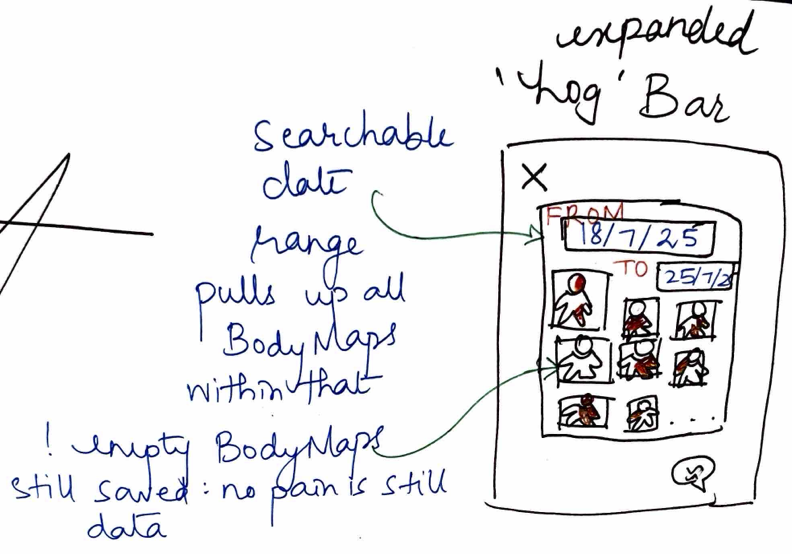 expanded
'Log' Bar
searchable
date
range
pulls up all
BodyMaps
within that
! empty BodyMaps
still saved : no pain is still
data
X
FROM
18/7/25
TO
25/7/2
. . .